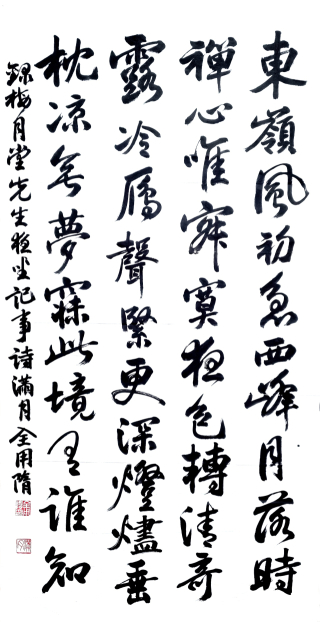 東嶺風初急西峰月落時
禪心唯寂寞夜色轉清奇
露冷雁聲緊更深燈燼垂
枕凉無夢寐此境有誰知
錄梅月堂先生夜坐記事詩滿月全用隋